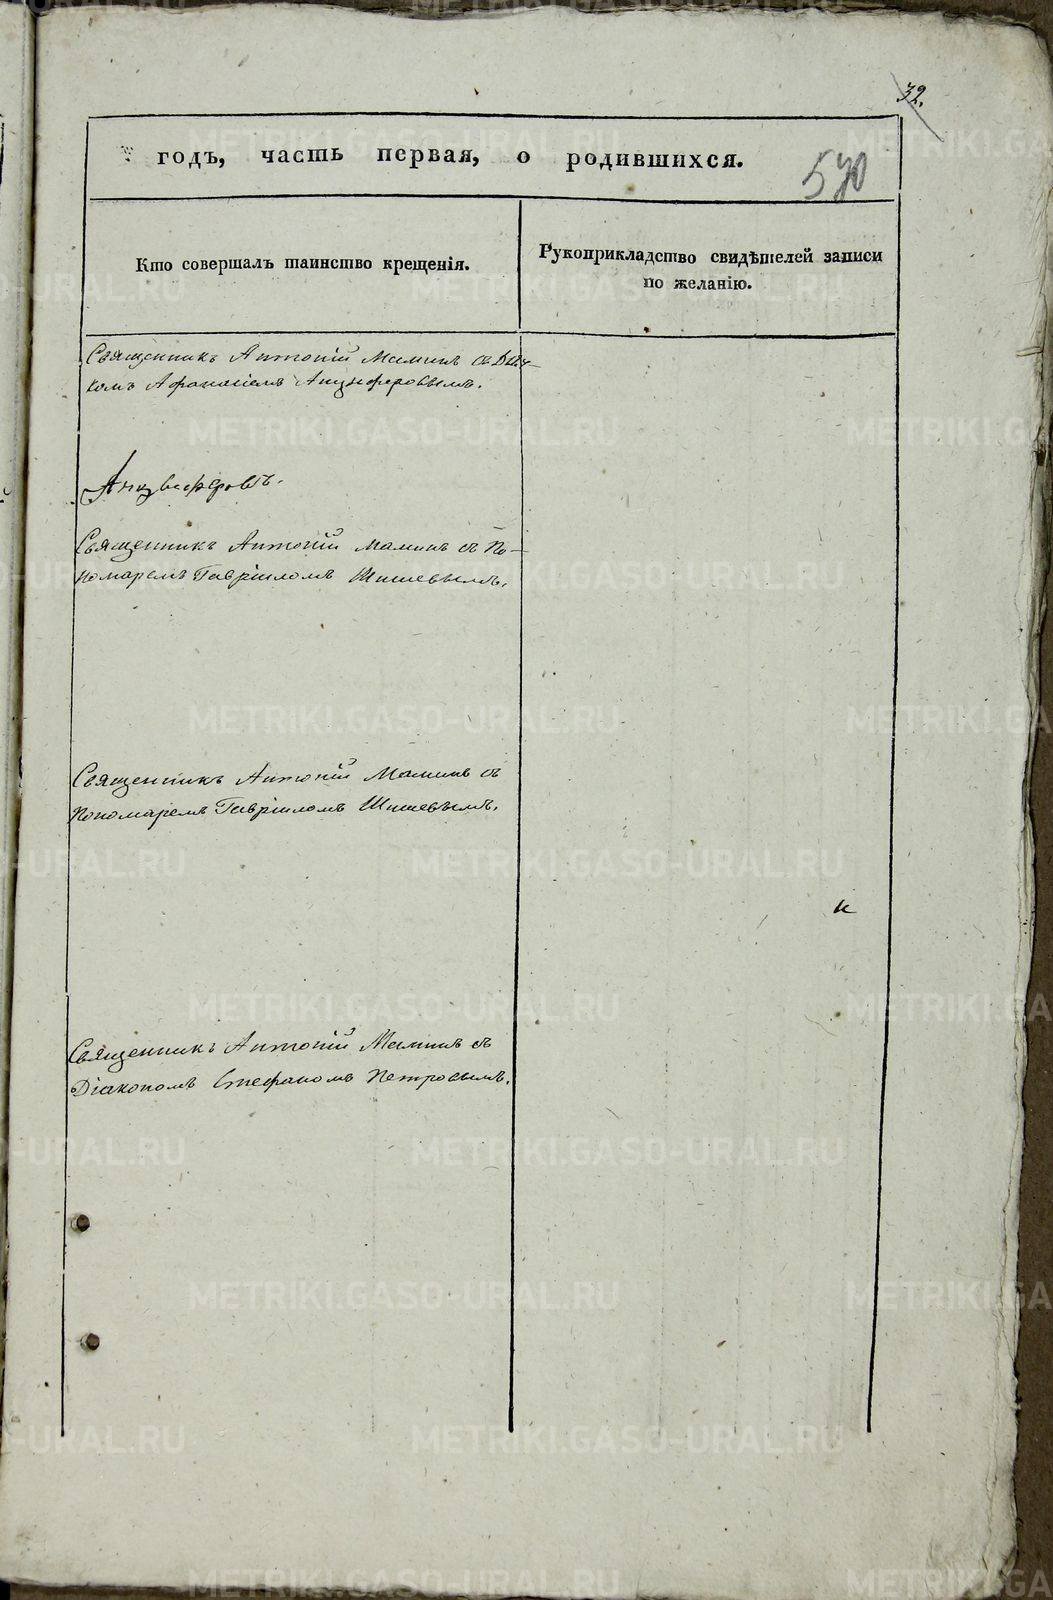 32.
годъ, часть первая, о родившихся.
570
Кто совершалъ таинство крещенія.
Рукоприкладство свидѣтелей записи
по желанію.
Священникъ Антоній Маминъ съ Дьяч-
комъ Афанасіемъ Анциферовымъ.
Анциферовъ.
Священникъ Антоній Маминъ съ По-
номаремъ Гавріиломъ Шишевымъ.
Священникъ Антоній Маминъ съ
Пономаремъ Гавріиломъ Шишевымъ.
Священникъ Антоній Маминъ съ
Діакономъ Стефаномъ Петровымъ.
METRIKI.GASO-URAL.RU